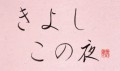 きよし
この夜